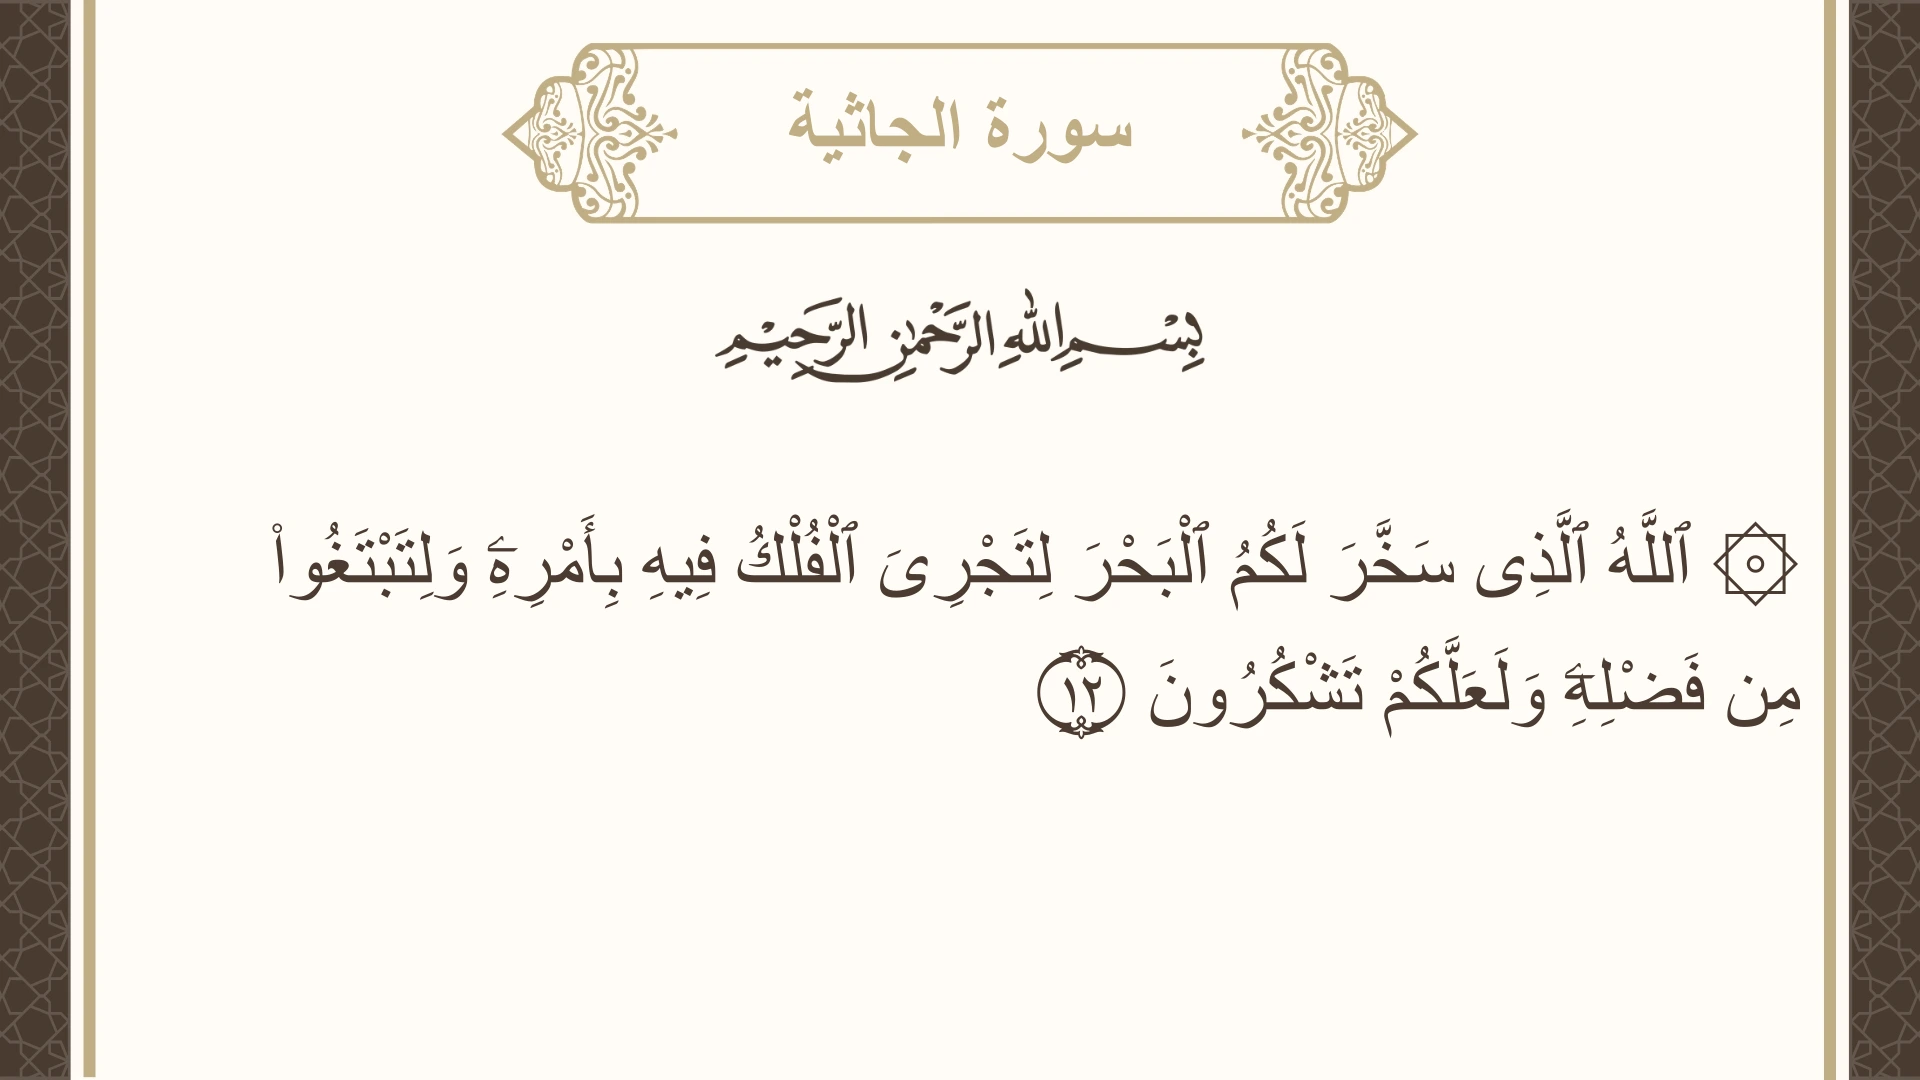 سورة الجاثية
بِسْمِ اللهِ الرَّحْمٰنِ الرَّحِيْمِ
۞ ٱللَّهُ ٱلَّذِى سَخَّرَ لَكُمُ ٱلْبَحْرَ لِتَجْرِىَ ٱلْفُلْكُ فِيهِ بِأَمْرِهِۦ وَلِتَبْتَغُوا۟
مِن فَضْلِهِۦ وَلَعَلَّكُمْ تَشْكُرُونَ ١٢